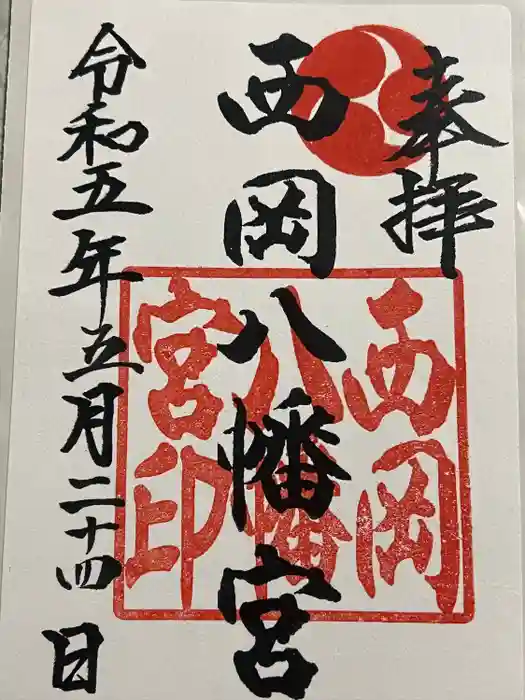 奉拝
西岡八幡宮
令和五年五月二十四日
西岡
八幡
宮印